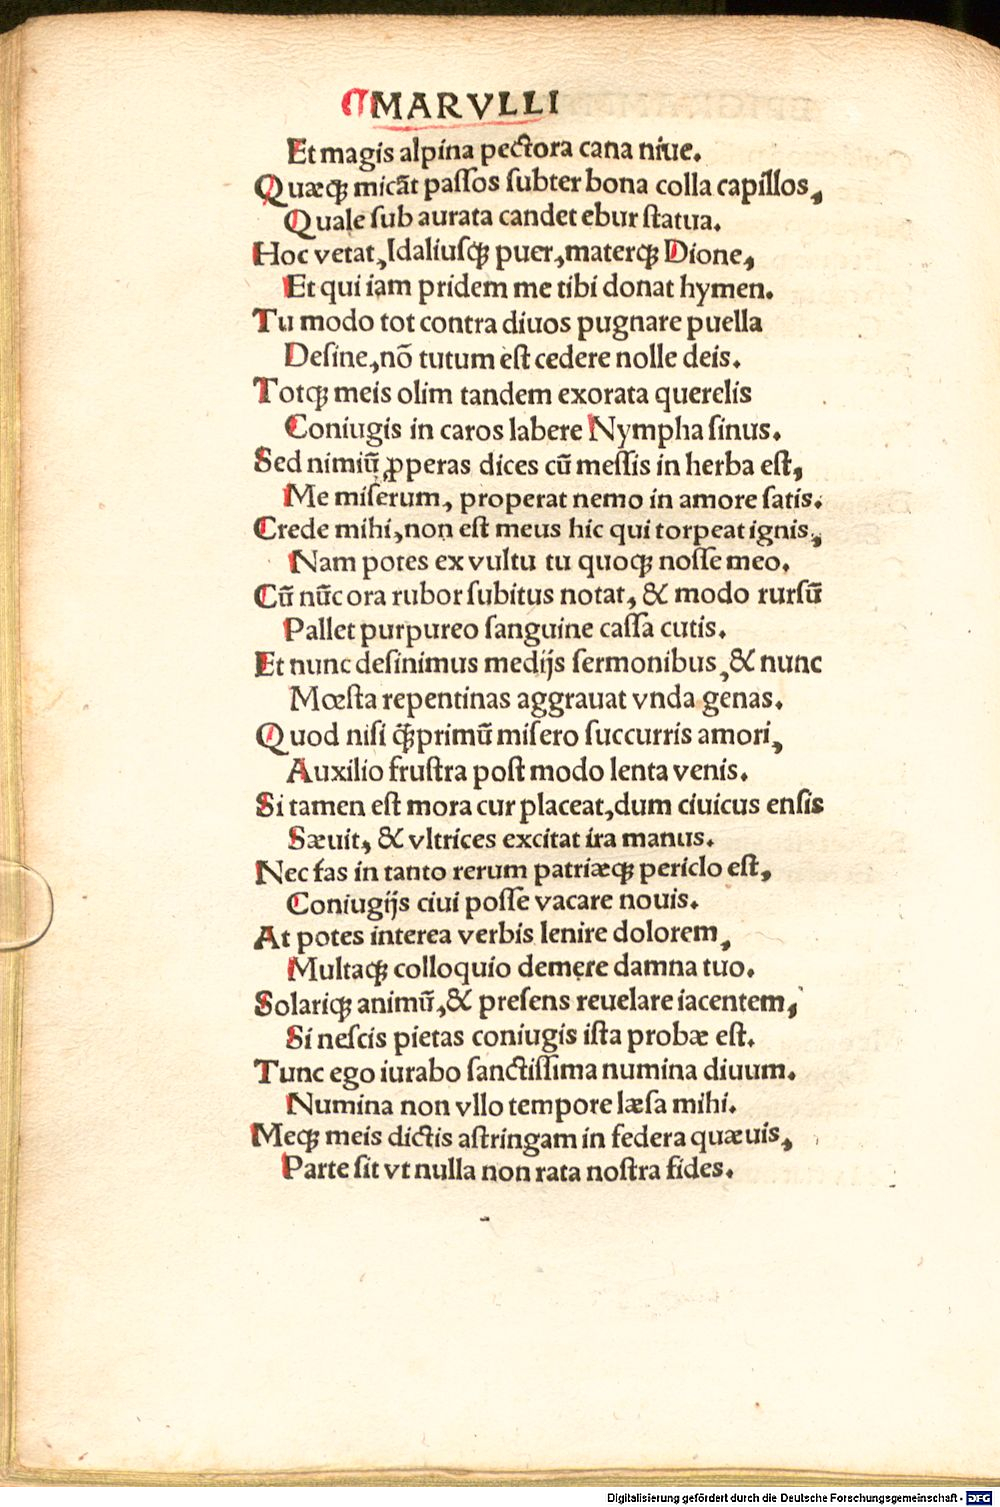 MARVLLI
Et magis alpina pectora cana niue.
Quæq; micãt passos subter bona colla capillos,
Quale sub aurata candet ebur statua.
Hoc vetat, Idaliusq; puer, materq; Dione,
Et qui iam pridem me tibi donat hymen.
Tu modo tot contra diuos pugnare puella
Desine, nõ tutum est cedere nolle deis.
Totq; meis olim tandem exorata querelis
Coniugis in caros labere Nympha sinus.
Sed nimiũ ꝓperas dices cũ messis in herba est,
Me miserum, properat nemo in amore satis.
Crede mihi, non est meus hic qui torpeat ignis,
Nam potes ex vultu tu quoq; nosse meo.
Cũ nũc ora rubor subitus notat, & modo rursũ
Pallet purpureo sanguine cassa cutis.
Et nunc desinimus medijs sermonibus, & nunc
Mœsta repentinas aggrauat vnda genas.
Quod nisi q̃primũ misero succurris amori,
Auxilio frustra post modo lenta venis.
Si tamen est mora cur placeat, dum ciuicus ensis
Sæuit, & vltrices excitat ira manus.
Nec fas in tanto rerum patriæq; periclo est,
Coniugijs ciui posse vacare nouis.
At potes interea verbis lenire dolorem,
Multaq; colloquio demere damna tuo.
Solariq; animũ, & presens reuelare iacentem,
Si nescis pietas coniugis ista probæ est.
Tunc ego iurabo sanctissima numina diuum.
Numina non vllo tempore læsa mihi.
Meq; meis dictis astringam in federa quæuis,
Parte sit vt nulla non rata nostra fides.
Digitalisierung gefördert durch die Deutsche Forschungsgemeinschaft - DFG